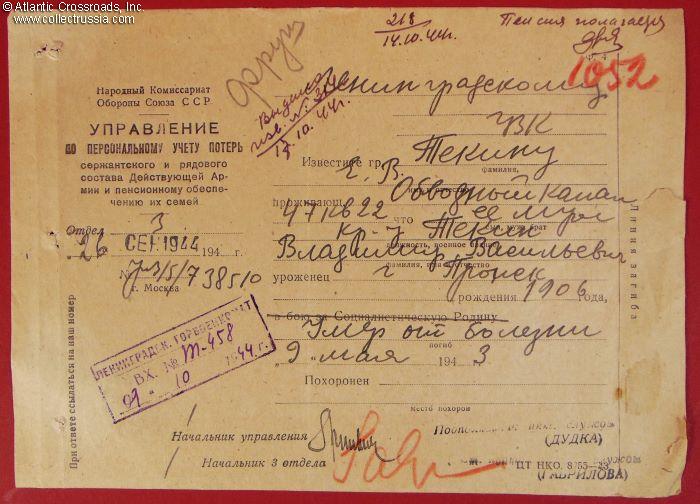 © Atlantic Crossroads, Inc.
www.collectrussia.com
218
14.10.44г.
Пенсия полагается
1052
Народный Комиссариат
Обороны Союза ССР
УПРАВЛЕНИЕ
ПО ПЕРСОНАЛЬНОМУ УЧЕТУ ПОТЕРЬ
сержантского и рядового
состава Действующей Ар-
мии и пенсионному обеспе-
чению их семей
Отдел 3
26 СЕН 1944 194 г.
№ 738510
г. Москва
При ответе ссылаться на наш номер
ЛЕНИНГРАДСК. ГОРВОЕНКОМАТ
ВХ. № Т-458
10 1944 г.
Выписано
изв. №
17.10.44г.
Ленинградскому
ГВК
Известите гр. Текину
фамилия,
Е. В.
проживающ. Обводный канал
47 кв 22 что ее муж
муж, брат
кр-ц Текин
должность, военное звание
Владимир Васильевич
фамилия, имя и отчество
уроженец г Пронск
рождения 1906 года,
в бою за Социалистическую Родину
Умер от болезни
погиб
„9" мая 1943
Похоронен
место похорон
Линия загиба
Начальник управления
Подполковник инт. службы
(ДУДКА)
Начальник 3 отдела
службы
(ГАВРИЛОВА)
ЦТ НКО.